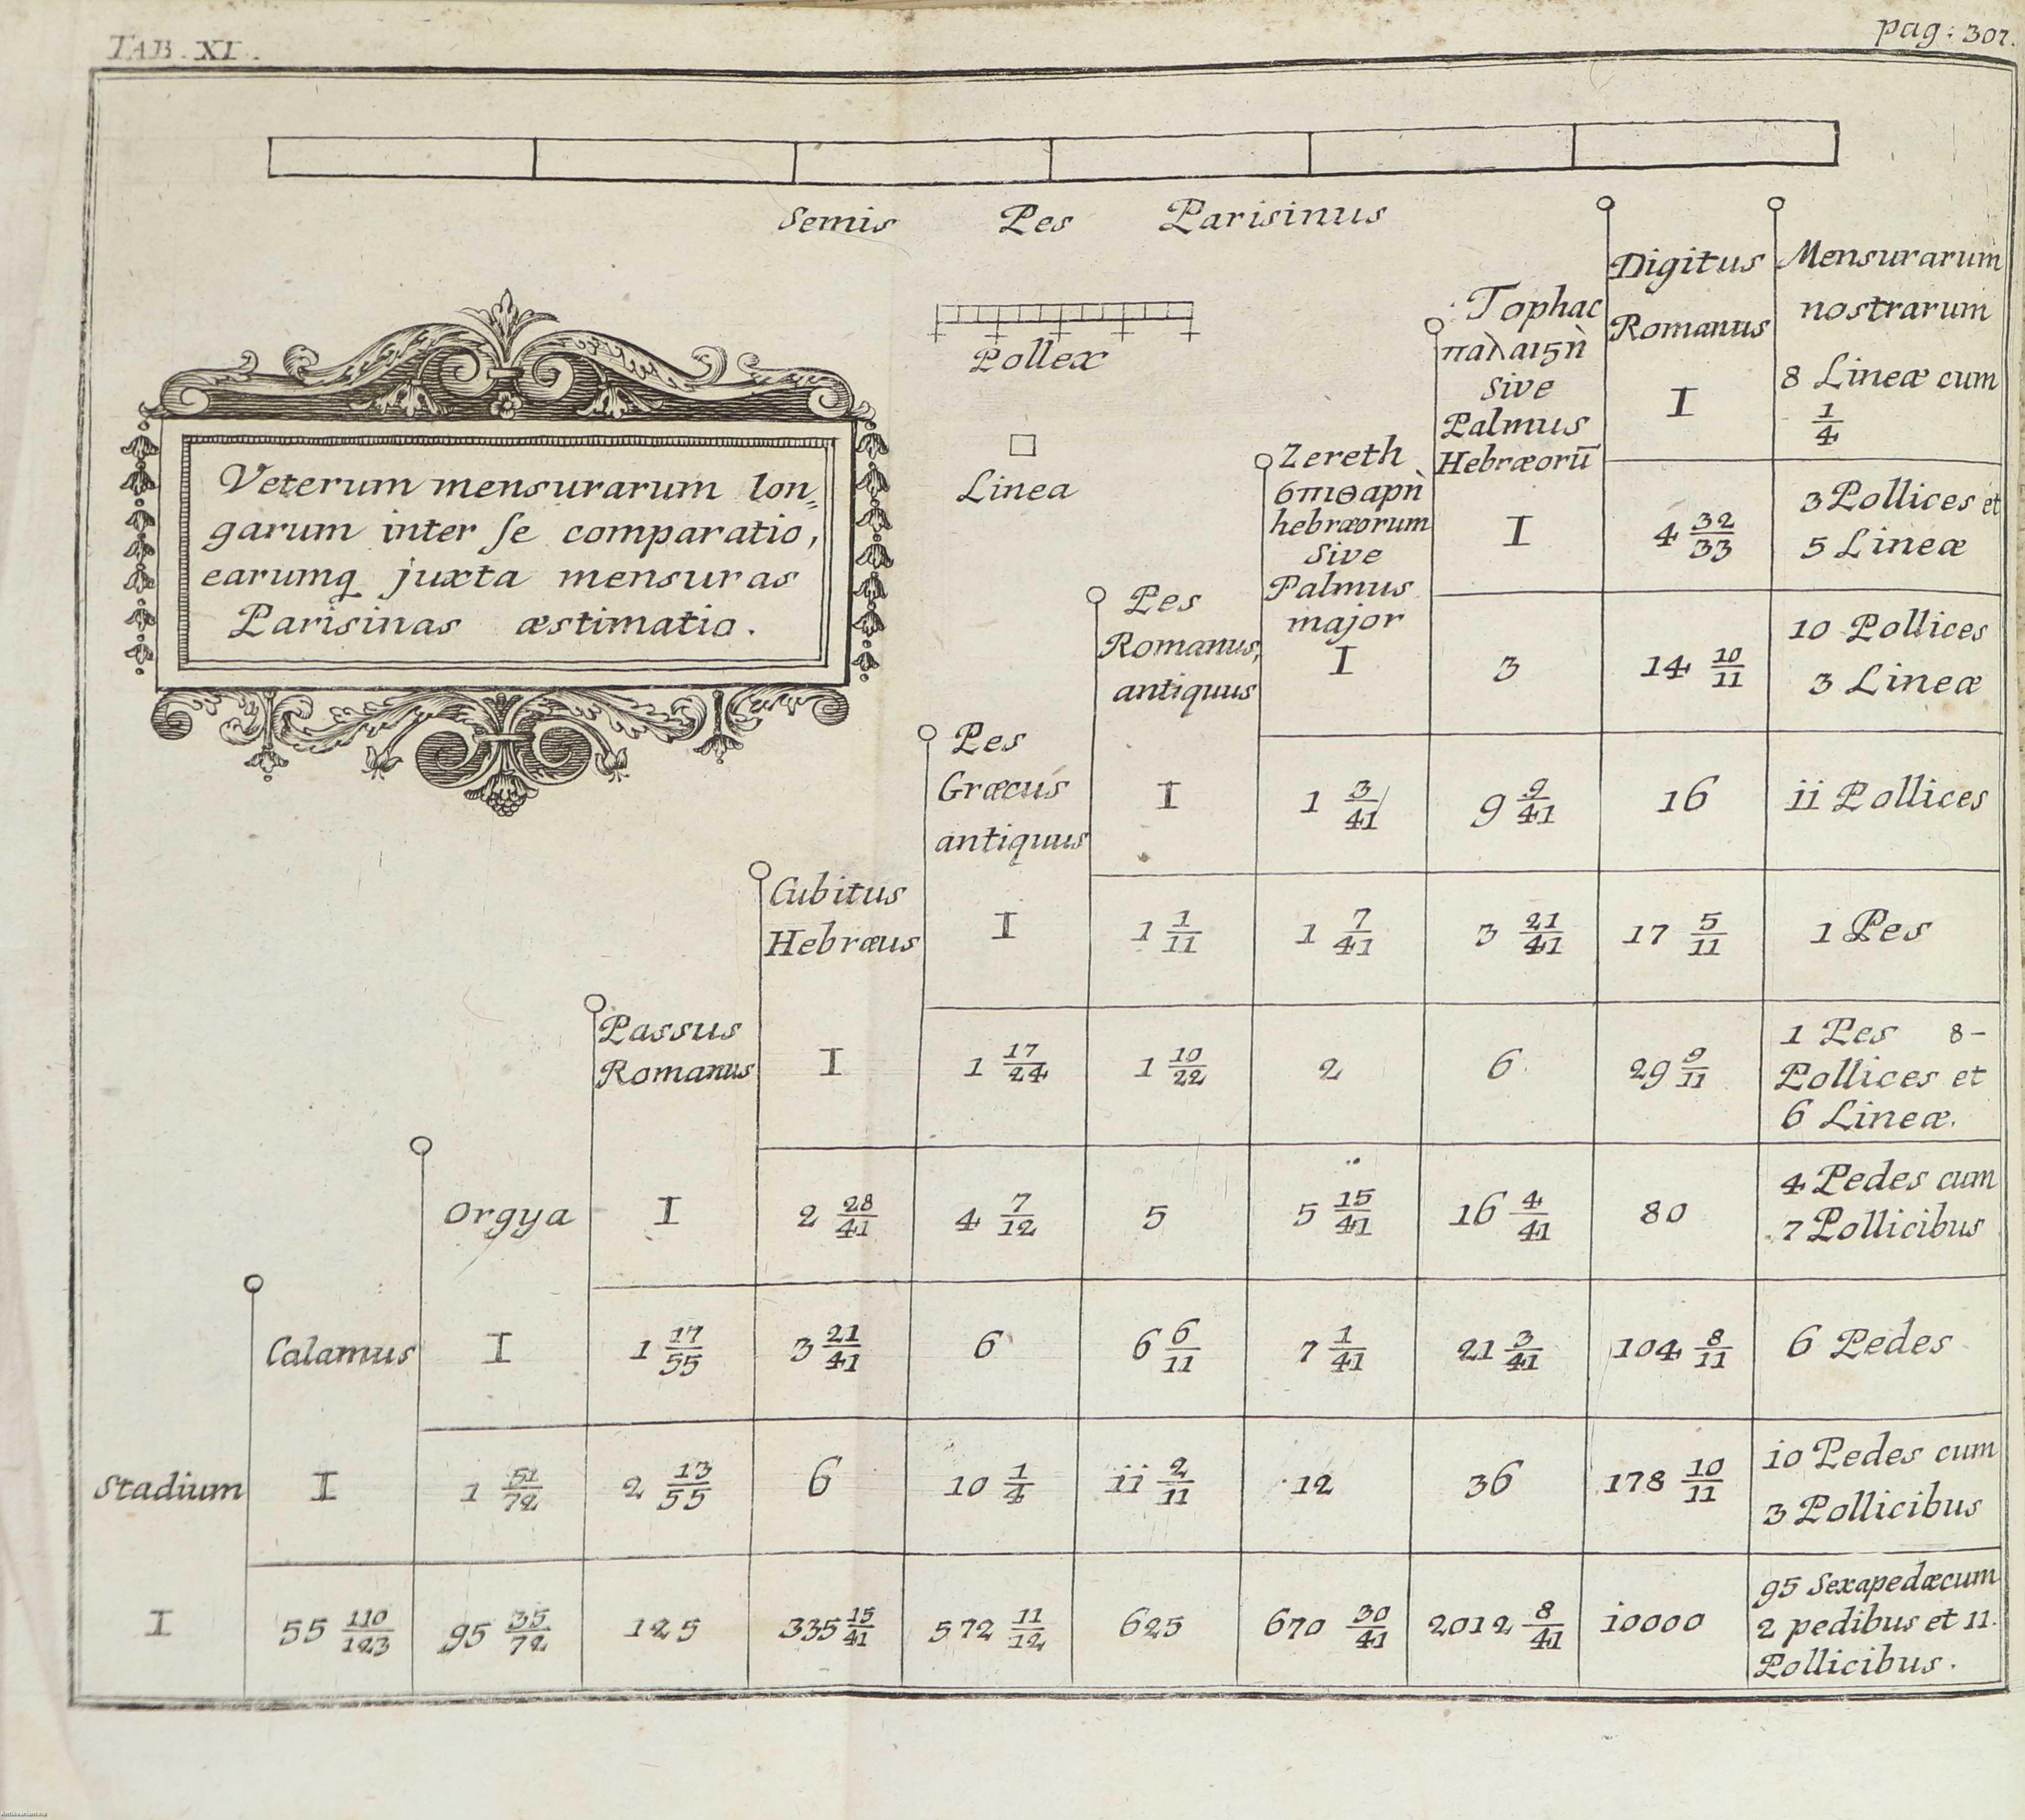 TAB. XI.
pag: 307.
Semis Pes Parisinus
Pollex
Linea
Veterum mensurarum lon=
garum inter se comparatio,
earumq juxta mensuras
Parisinas æstimatio.
Digitus
Romanus
I
Mensurarum
nostrarum
8 Lineæ cum
1/4
Tophac
παλαιϛὴ
sive
Palmus
Hebræorū
I
4 32/33
3 Pollices et
5 Lineæ
Zereth
σπιθαρὴ
hebræorum
Sive
Palmus
major
I
3
14 10/11
10 Pollices
3 Lineæ
Pes
Romanus,
antiquus
I
1 3/41
9 9/41
16
ii Pollices
Pes
Græcus
antiquus
I
1 1/11
1 7/41
3 21/41
17 5/11
1 Pes
Cubitus
Hebræus
I
1 17/24
1 10/22
2
6
29 9/11
1 Pes 8-
Pollices et
6 Lineæ.
Passus
Romanus
I
2 28/41
4 7/12
5
5 15/41
16 4/41
80
4 Pedes cum
7 Pollicibus
Orgya
I
1 17/55
3 21/41
6
6 6/11
7 1/41
21 3/41
104 8/11
6 Pedes
Calamus
I
1 51/72
2 13/55
6
10 1/4
ii 2/11
12
36
178 10/11
io Pedes cum
3 Pollicibus
Stadium
I
55 110/123
95 35/72
125
335 15/41
572 11/12
625
670 30/41
2012 8/41
i0000
95 Sexapedæcum
2 pedibus et 11.
Pollicibus.